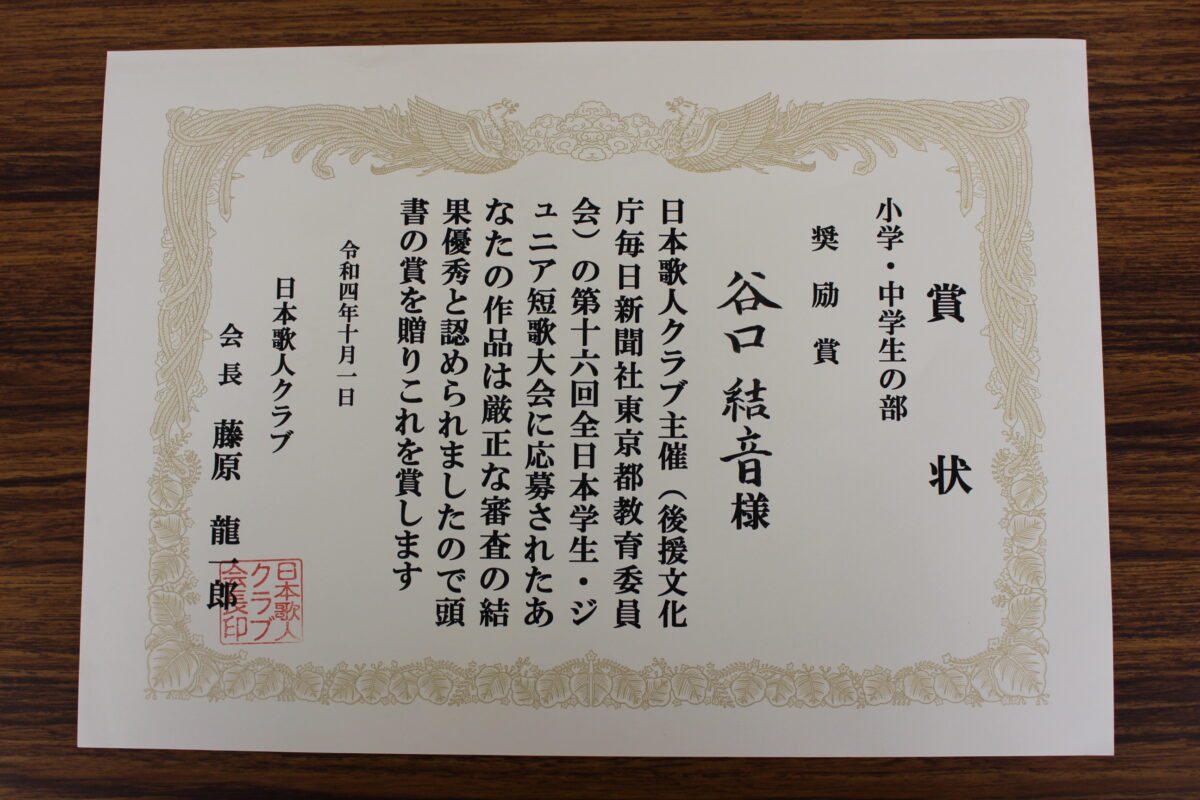 賞状
小学・中学生の部
奨励賞
谷口 結音様
日本歌人クラブ主催（後援文化
庁毎日新聞社東京都教育委員
会）の第十六回全日本学生・ジ
ュニア短歌大会に応募されたあ
なたの作品は厳正な審査の結
果優秀と認められましたので頭
書の賞を贈りこれを賞します
令和四年十月一日
日本歌人クラブ
会長 藤原 龍一郎
日本歌人
クラブ
会長印